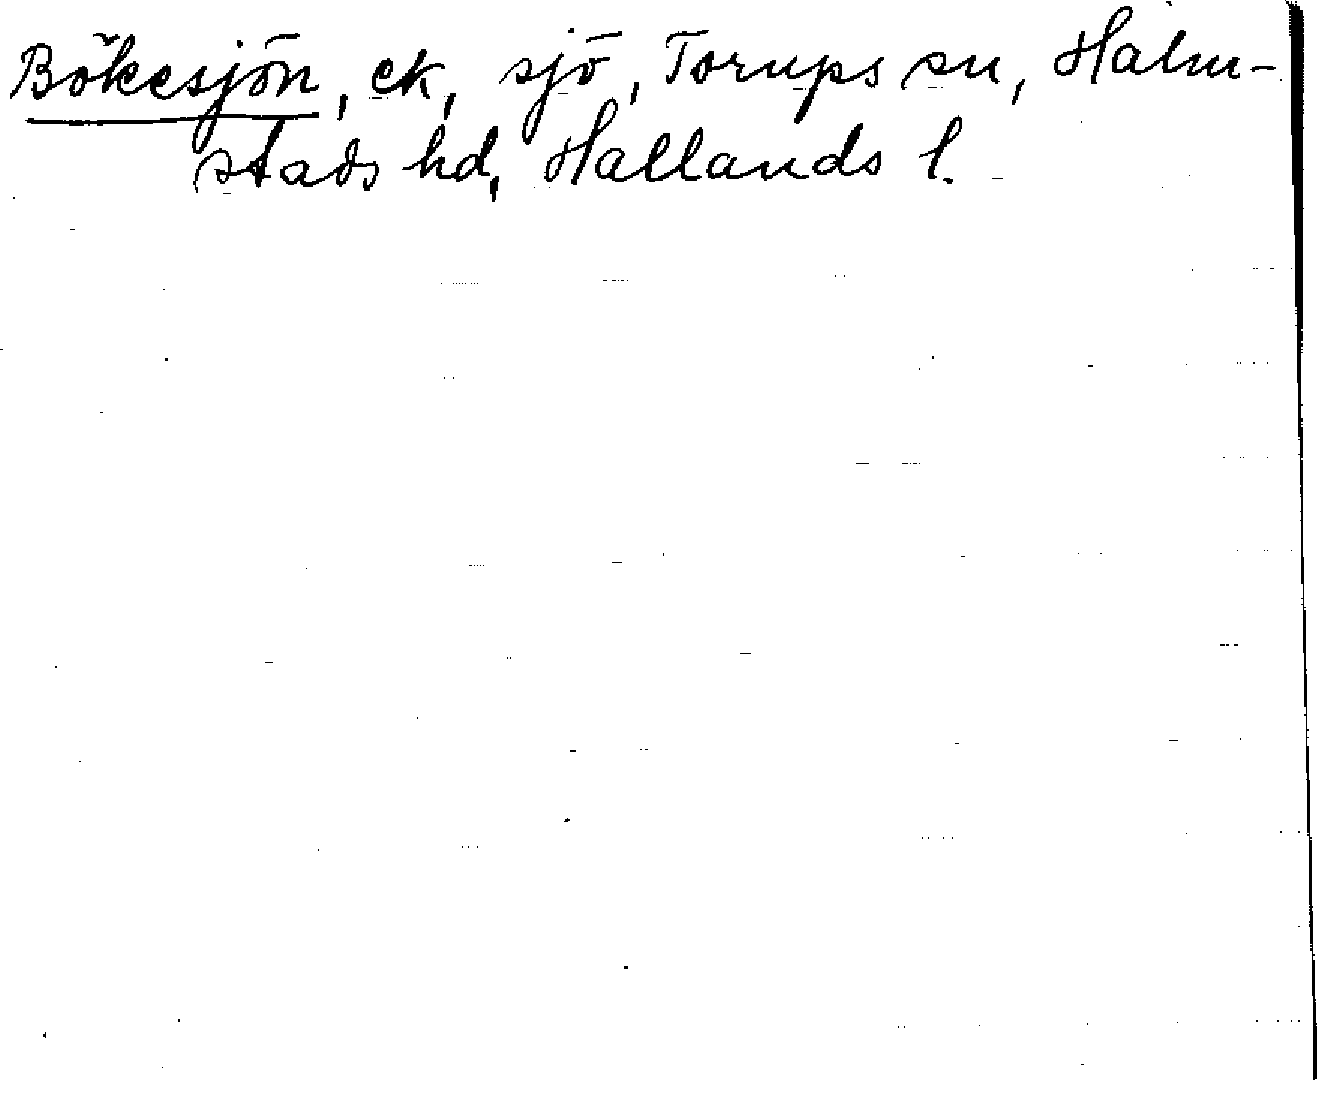 Bökesjön, ek, sjö, Torups sn, Halm-
stads hd, Hallands l.